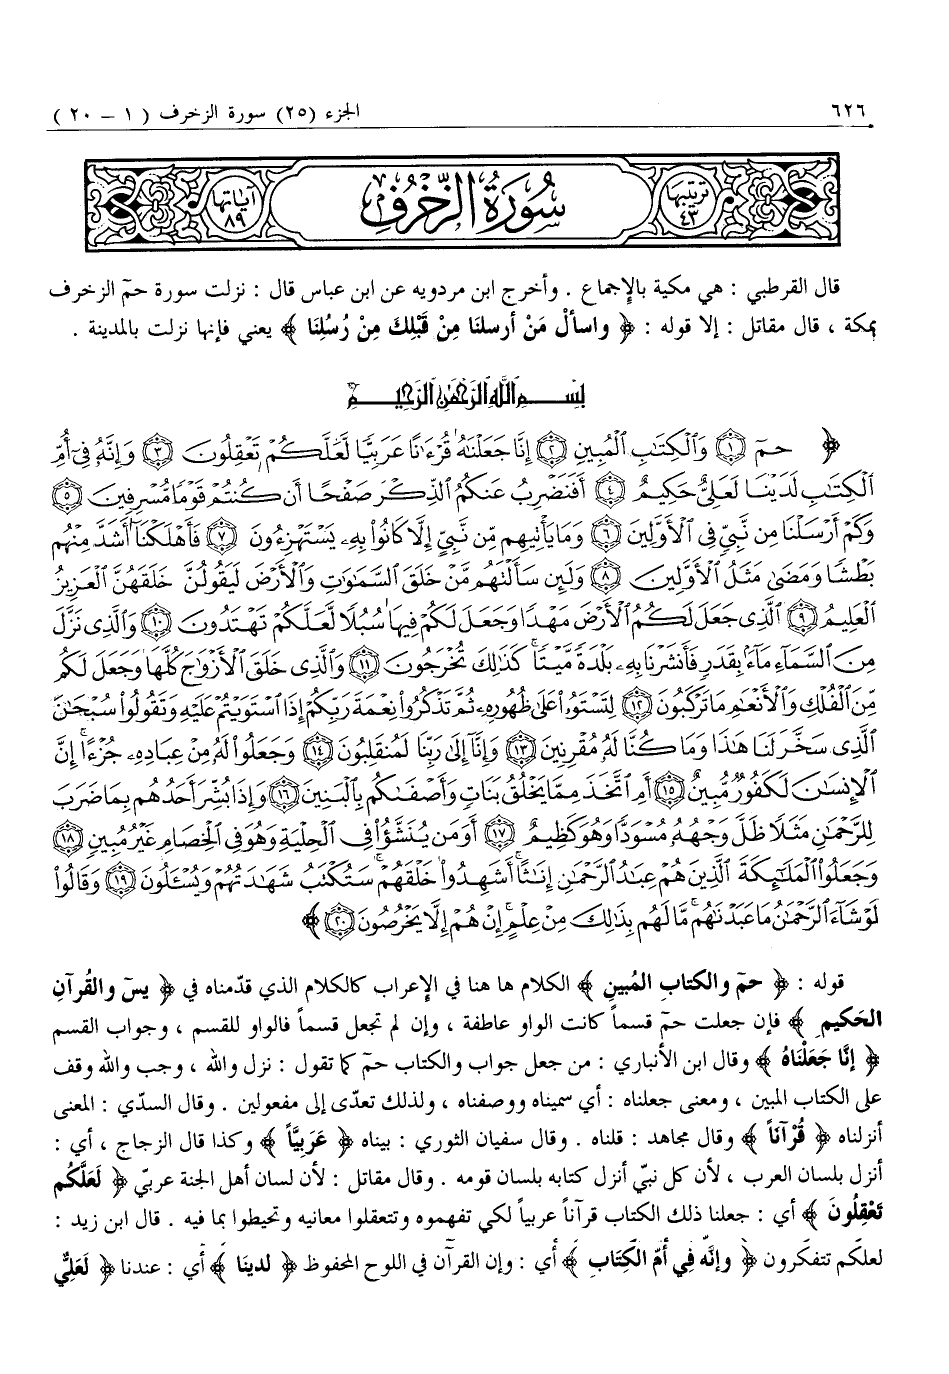 ٦٢٦ الجزء (٢٥) سورة الزخرف ( ١ - ٢٠ )
ترتيبها ٤٣ سُورَةُ الزُّخْرُفِ آياتها ٨٩
قال القرطبي : هي مكية بالإجماع . وأخرج ابن مردويه عن ابن عباس قال : نزلت سورة حمۤ الزخرف
بمكة ، قال مقاتل : إلا قوله : ﴿ واسألْ مَنْ أرسلنَا مِنْ قَبْلِكَ مِنْ رُسُلِنَا ﴾ يعني فإنها نزلت بالمدينة .
بِسْمِ اللَّهِ الرَّحْمَٰنِ الرَّحِيمِ
﴿ حمٓ ﴿١﴾ وَٱلْكِتَٰبِ ٱلْمُبِينِ ﴿٢﴾ إِنَّا جَعَلْنَٰهُ قُرْءَٰنًا عَرَبِيًّا لَّعَلَّكُمْ تَعْقِلُونَ ﴿٣﴾ وَإِنَّهُۥ فِىٓ أُمِّ
ٱلْكِتَٰبِ لَدَيْنَا لَعَلِىٌّ حَكِيمٌ ﴿٤﴾ أَفَنَضْرِبُ عَنكُمُ ٱلذِّكْرَ صَفْحًا أَن كُنتُمْ قَوْمًا مُّسْرِفِينَ ﴿٥﴾
وَكَمْ أَرْسَلْنَا مِن نَّبِىٍّ فِى ٱلْأَوَّلِينَ ﴿٦﴾ وَمَا يَأْتِيهِم مِّن نَّبِىٍّ إِلَّا كَانُوا۟ بِهِۦ يَسْتَهْزِءُونَ ﴿٧﴾ فَأَهْلَكْنَآ أَشَدَّ مِنْهُم
بَطْشًا وَمَضَىٰ مَثَلُ ٱلْأَوَّلِينَ ﴿٨﴾ وَلَئِن سَأَلْتَهُم مَّنْ خَلَقَ ٱلسَّمَٰوَٰتِ وَٱلْأَرْضَ لَيَقُولُنَّ خَلَقَهُنَّ ٱلْعَزِيزُ
ٱلْعَلِيمُ ﴿٩﴾ ٱلَّذِى جَعَلَ لَكُمُ ٱلْأَرْضَ مَهْدًا وَجَعَلَ لَكُمْ فِيهَا سُبُلًا لَّعَلَّكُمْ تَهْتَدُونَ ﴿١٠﴾ وَٱلَّذِى نَزَّلَ
مِنَ ٱلسَّمَآءِ مَآءًۢ بِقَدَرٍ فَأَنشَرْنَا بِهِۦ بَلْدَةً مَّيْتًا ۚ كَذَٰلِكَ تُخْرَجُونَ ﴿١١﴾ وَٱلَّذِى خَلَقَ ٱلْأَزْوَٰجَ كُلَّهَا وَجَعَلَ لَكُم
مِّنَ ٱلْفُلْكِ وَٱلْأَنْعَٰمِ مَا تَرْكَبُونَ ﴿١٢﴾ لِتَسْتَوُۥا۟ عَلَىٰ ظُهُورِهِۦ ثُمَّ تَذْكُرُوا۟ نِعْمَةَ رَبِّكُمْ إِذَا ٱسْتَوَيْتُمْ عَلَيْهِ وَتَقُولُوا۟ سُبْحَٰنَ
ٱلَّذِى سَخَّرَ لَنَا هَٰذَا وَمَا كُنَّا لَهُۥ مُقْرِنِينَ ﴿١٣﴾ وَإِنَّآ إِلَىٰ رَبِّنَا لَمُنقَلِبُونَ ﴿١٤﴾ وَجَعَلُوا۟ لَهُۥ مِنْ عِبَادِهِۦ جُزْءًا ۚ إِنَّ
ٱلْإِنسَٰنَ لَكَفُورٌ مُّبِينٌ ﴿١٥﴾ أَمِ ٱتَّخَذَ مِمَّا يَخْلُقُ بَنَاتٍ وَأَصْفَىٰكُم بِٱلْبَنِينَ ﴿١٦﴾ وَإِذَا بُشِّرَ أَحَدُهُم بِمَا ضَرَبَ
لِلرَّحْمَٰنِ مَثَلًا ظَلَّ وَجْهُهُۥ مُسْوَدًّا وَهُوَ كَظِيمٌ ﴿١٧﴾ أَوَمَن يُنَشَّؤُا۟ فِى ٱلْحِلْيَةِ وَهُوَ فِى ٱلْخِصَامِ غَيْرُ مُبِينٍ ﴿١٨﴾
وَجَعَلُوا۟ ٱلْمَلَٰٓئِكَةَ ٱلَّذِينَ هُمْ عِبَٰدُ ٱلرَّحْمَٰنِ إِنَٰثًا ۚ أَشَهِدُوا۟ خَلْقَهُمْ ۚ سَتُكْتَبُ شَهَٰدَتُهُمْ وَيُسْـَٔلُونَ ﴿١٩﴾ وَقَالُوا۟
لَوْ شَآءَ ٱلرَّحْمَٰنُ مَا عَبَدْنَٰهُم ۗ مَّا لَهُم بِذَٰلِكَ مِنْ عِلْمٍ ۖ إِنْ هُمْ إِلَّا يَخْرُصُونَ ﴿٢٠﴾ ﴾
قوله : ﴿ حمۤ والكتابِ المُبينِ ﴾ الكلام ها هنا في الإعراب كالكلام الذي قدّمناه في ﴿ يسۤ والقُرآنِ
الحَكيمِ ﴾ فإن جعلت حمۤ قسماً كانت الواو عاطفة ، وإن لم تجعل قسماً فالواو للقسم ، وجواب القسم
﴿ إنَّا جَعَلْنَاهُ ﴾ وقال ابن الأنباري : من جعل جواب والكتاب حمۤ كما تقول : نزل والله ، وجب والله وقف
على الكتاب المبين ، ومعنى جعلناه : أي سميناه ووصفناه ، ولذلك تعدّى إلى مفعولين . وقال السدّي : المعنى
أنزلناه ﴿ قُرْآناً ﴾ وقال مجاهد : قلناه . وقال سفيان الثوري : بيناه ﴿ عَرَبيَّاً ﴾ وكذا قال الزجاج ، أي :
أنزل بلسان العرب ، لأن كل نبيّ أنزل كتابه بلسان قومه . وقال مقاتل : لأن لسان أهل الجنة عربيّ ﴿ لَعَلَّكُم
تَعْقِلُونَ ﴾ أي : جعلنا ذلك الكتاب قرآناً عربياً لكي تفهموه وتتعقلوا معانيه وتحيطوا بما فيه . قال ابن زيد :
لعلكم تتفكرون ﴿ وإنَّه فِي أمّ الكِتَابِ ﴾ أي : وإن القرآن في اللوح المحفوظ ﴿ لدينَا ﴾ أي : عندنا ﴿ لَعَليٌّ